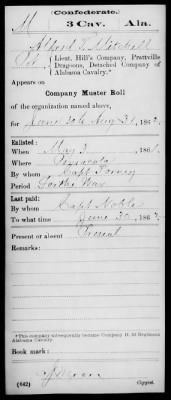 (Confederate.)
M 3 Cav. Ala.
Alfred V. Mitchell
Pvt, (Lieut. Hill's Company, Prattville
Dragoons, Detached Company of
Alabama Cavalry.*
Appears on
Company Muster Roll
of the organization named above,
for June 30 to Aug 31, 186
Enlisted:
When May 3, 186
Where Pensacola
By whom Capt
Period For the War
Last paid:
By whom Capt Noble
To what time June 30, 186
Present or absent Present
Remarks:
*This company subsequently became Company H, 3d Regiment
Alabama Cavalry.
Book mark:
(642) Copyist.